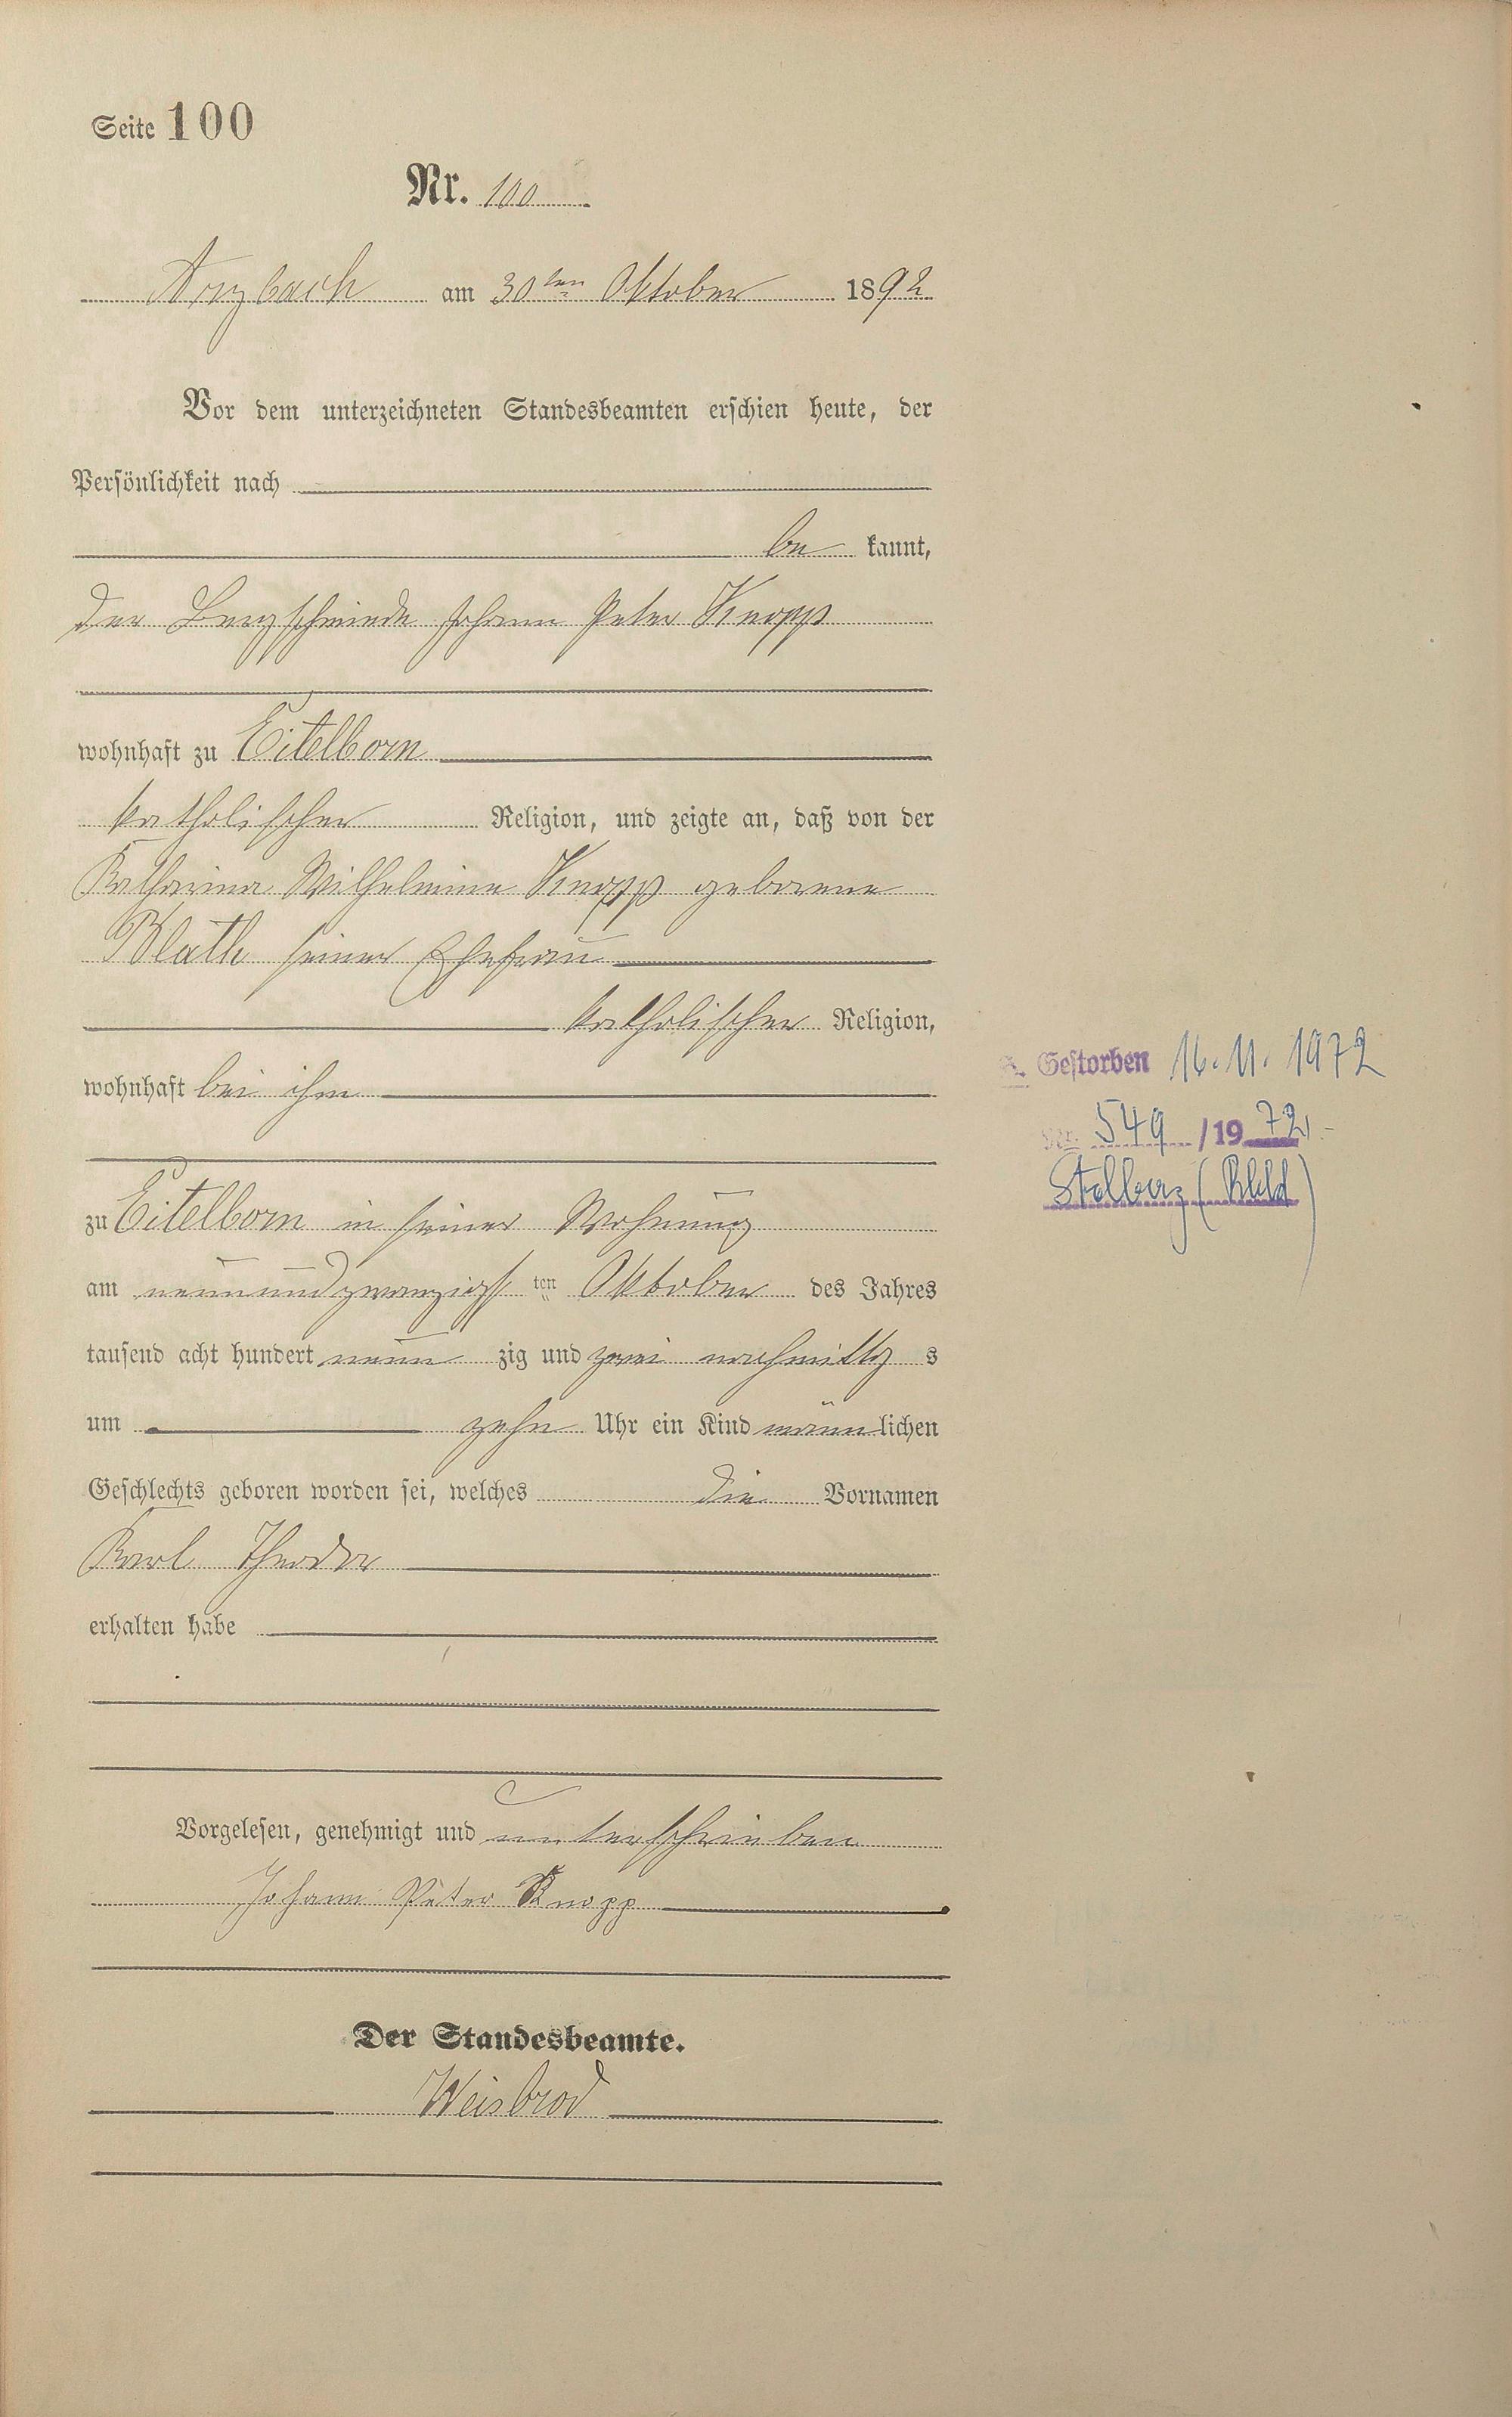 Seite 100
Nr. 100
Arzbach am 30ten Oktober 1892
Vor dem unterzeichneten Standesbeamten erschien heute, der
Persönlichkeit nach
be kannt,
der Bergschmiede Johann Peter Knopp
wohnhaft zu Eitelborn
katholischer Religion, und zeigte an, daß von der
Katharina Wilhelmine Knopp geborene
Blath seiner Ehefrau
katholischer Religion,
wohnhaft bei ihm
zu Eitelborn in seiner Wohnung
am neunundzwanzigsten Oktober des Jahres
tausend acht hundert neun zig und zwei nachmittags
um zehn Uhr ein Kind männlichen
Geschlechts geboren worden sei, welches die Vornamen
Karl Theodor
erhalten habe
Vorgelesen, genehmigt und unterschrieben
Johann Peter Knopp
Der Standesbeamte.
Weisbrod
Gestorben 16.11.1972
Nr. 549/1972.-
Stolberg (Rhld)